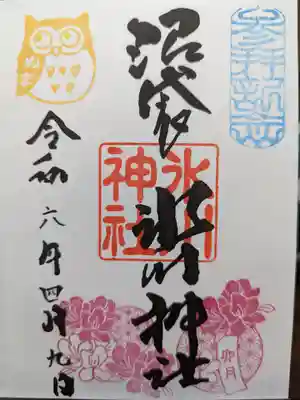 沼袋氷川神社
氷川
神社
令和六年四月九日
卯月